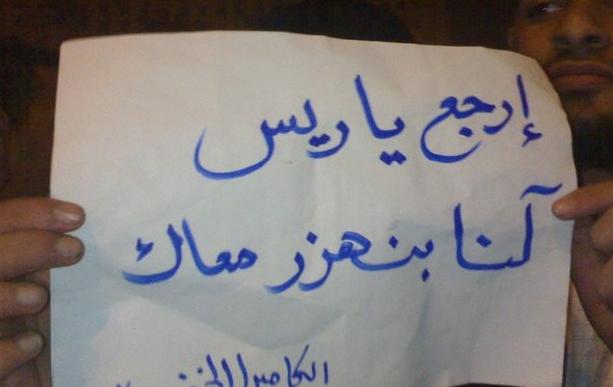 إرجع يا ريس
كنا بنهزر معاك
الكاميرا الخفية